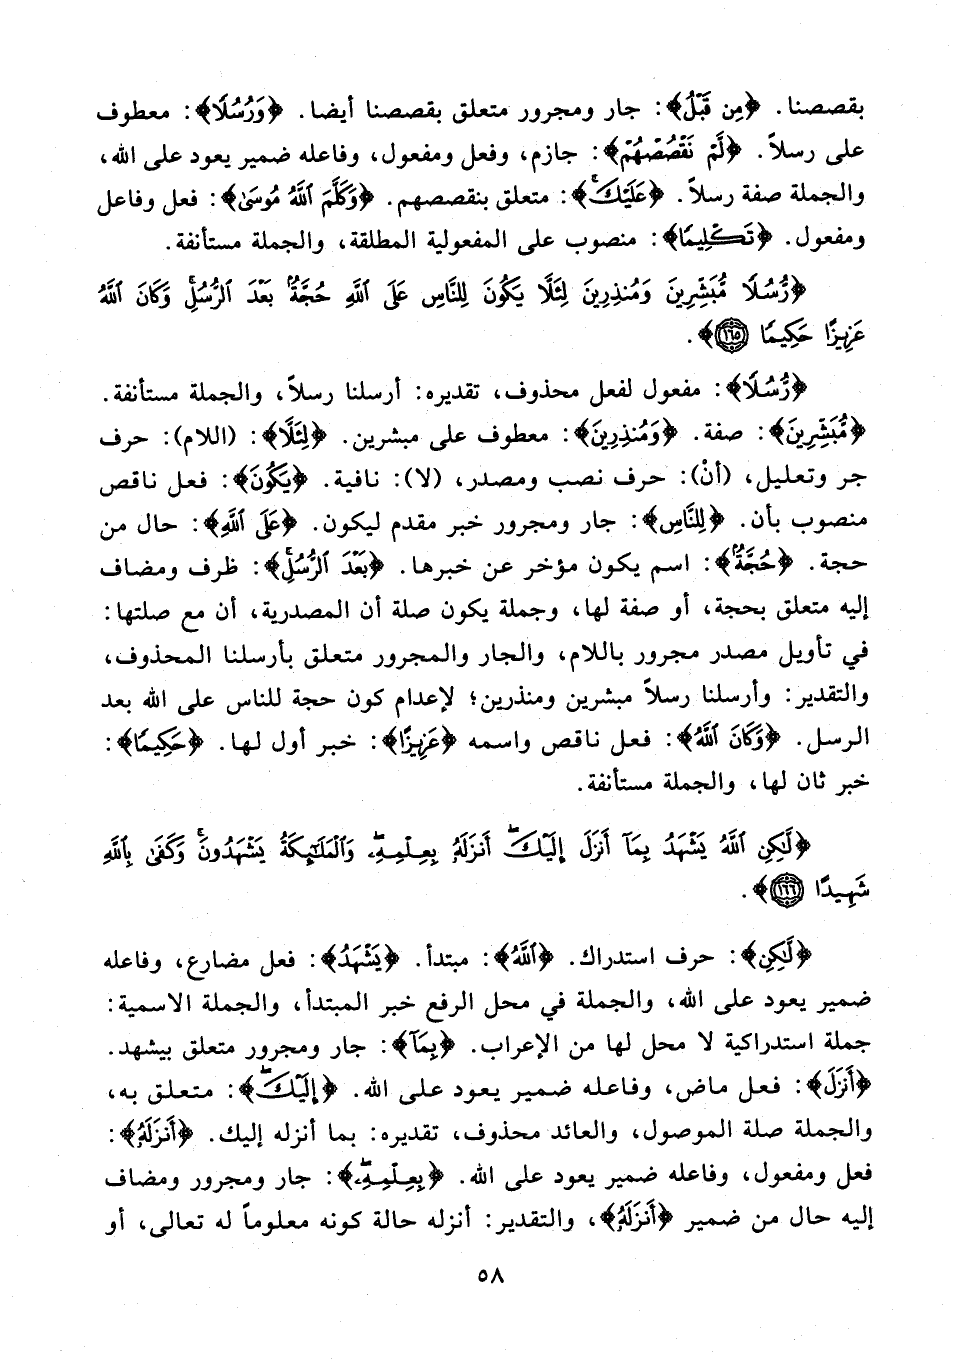 بقصصنا. ﴿مِن قَبْلُ﴾: جار ومجرور متعلق بقصصنا أيضا. ﴿وَرُسُلًا﴾: معطوف
على رسلاً. ﴿لَّمْ نَقْصُصْهُمْ﴾: جازم، وفعل ومفعول، وفاعله ضمير يعود على الله،
والجملة صفة رسلاً. ﴿عَلَيْكَ ۚ﴾: متعلق بنقصصهم. ﴿وَكَلَّمَ ٱللَّهُ مُوسَىٰ﴾: فعل وفاعل
ومفعول. ﴿تَكْلِيمًا﴾: منصوب على المفعولية المطلقة، والجملة مستأنفة.
﴿رُّسُلًا مُّبَشِّرِينَ وَمُنذِرِينَ لِئَلَّا يَكُونَ لِلنَّاسِ عَلَى ٱللَّهِ حُجَّةٌۢ بَعْدَ ٱلرُّسُلِ ۚ وَكَانَ ٱللَّهُ
عَزِيزًا حَكِيمًا ١٦٥﴾.
﴿رُّسُلًا﴾: مفعول لفعل محذوف، تقديره: أرسلنا رسلاً، والجملة مستأنفة.
﴿مُّبَشِّرِينَ﴾: صفة. ﴿وَمُنذِرِينَ﴾: معطوف على مبشرين. ﴿لِئَلَّا﴾: (اللام): حرف
جر وتعليل، (أنْ): حرف نصب ومصدر، (لا): نافية. ﴿يَكُونَ﴾: فعل ناقص
منصوب بأن. ﴿لِلنَّاسِ﴾: جار ومجرور خبر مقدم ليكون. ﴿عَلَى ٱللَّهِ﴾: حال من
حجة. ﴿حُجَّةٌۢ﴾: اسم يكون مؤخر عن خبرها. ﴿بَعْدَ ٱلرُّسُلِ ۚ﴾: ظرف ومضاف
إليه متعلق بحجة، أو صفة لها، وجملة يكون صلة أن المصدرية، أن مع صلتها:
في تأويل مصدر مجرور باللام، والجار والمجرور متعلق بأرسلنا المحذوف،
والتقدير: وأرسلنا رسلاً مبشرين ومنذرين؛ لإعدام كون حجة للناس على الله بعد
الرسل. ﴿وَكَانَ ٱللَّهُ﴾: فعل ناقص واسمه ﴿عَزِيزًا﴾: خبر أول لها. ﴿حَكِيمًا﴾:
خبر ثان لها، والجملة مستأنفة.
﴿لَّٰكِنِ ٱللَّهُ يَشْهَدُ بِمَآ أَنزَلَ إِلَيْكَ ۖ أَنزَلَهُۥ بِعِلْمِهِۦ ۖ وَٱلْمَلَٰٓئِكَةُ يَشْهَدُونَ ۚ وَكَفَىٰ بِٱللَّهِ
شَهِيدًا ١٦٦﴾.
﴿لَّٰكِنِ﴾: حرف استدراك. ﴿ٱللَّهُ﴾: مبتدأ. ﴿يَشْهَدُ﴾: فعل مضارع، وفاعله
ضمير يعود على الله، والجملة في محل الرفع خبر المبتدأ، والجملة الاسمية:
جملة استدراكية لا محل لها من الإعراب. ﴿بِمَآ﴾: جار ومجرور متعلق بيشهد.
﴿أَنزَلَ﴾: فعل ماض، وفاعله ضمير يعود على الله. ﴿إِلَيْكَ ۖ﴾: متعلق به،
والجملة صلة الموصول، والعائد محذوف، تقديره: بما أنزله إليك. ﴿أَنزَلَهُۥ﴾:
فعل ومفعول، وفاعله ضمير يعود على الله. ﴿بِعِلْمِهِۦ ۖ﴾: جار ومجرور ومضاف
إليه حال من ضمير ﴿أَنزَلَهُۥ﴾، والتقدير: أنزله حالة كونه معلوماً له تعالى، أو
٥٨